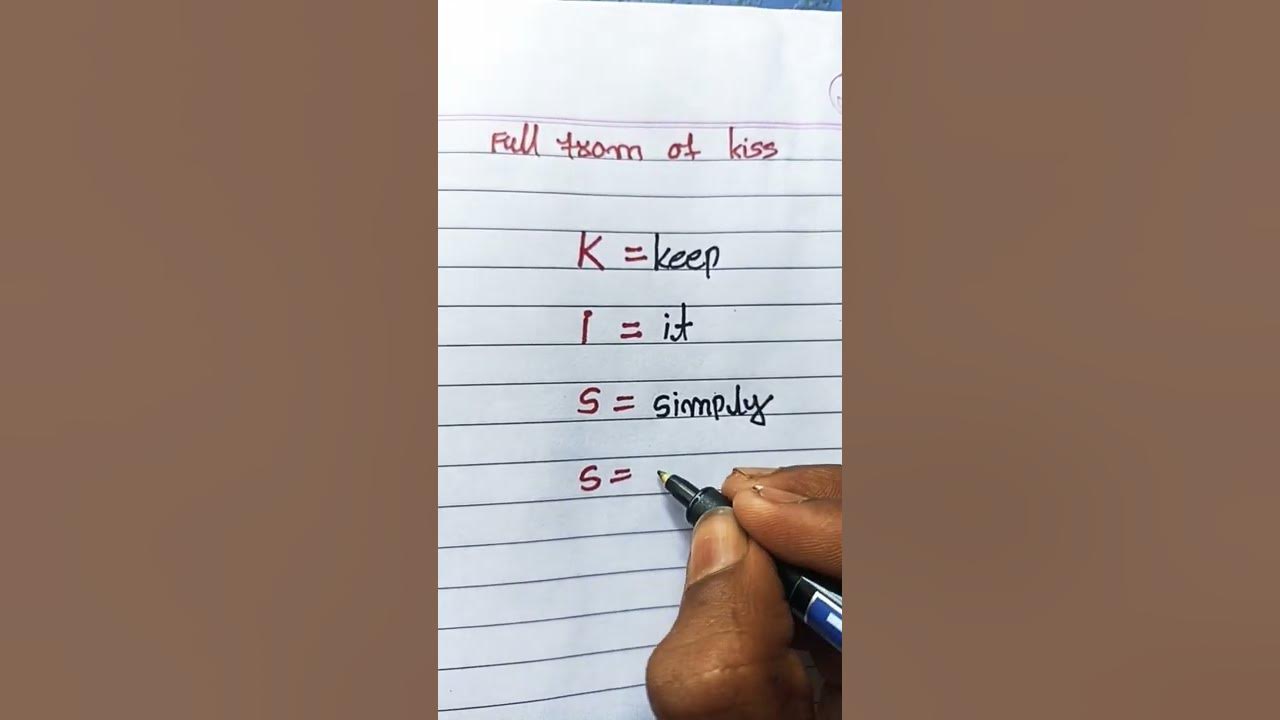 Full from of kiss
K = keep
I = it
S = simply
S =